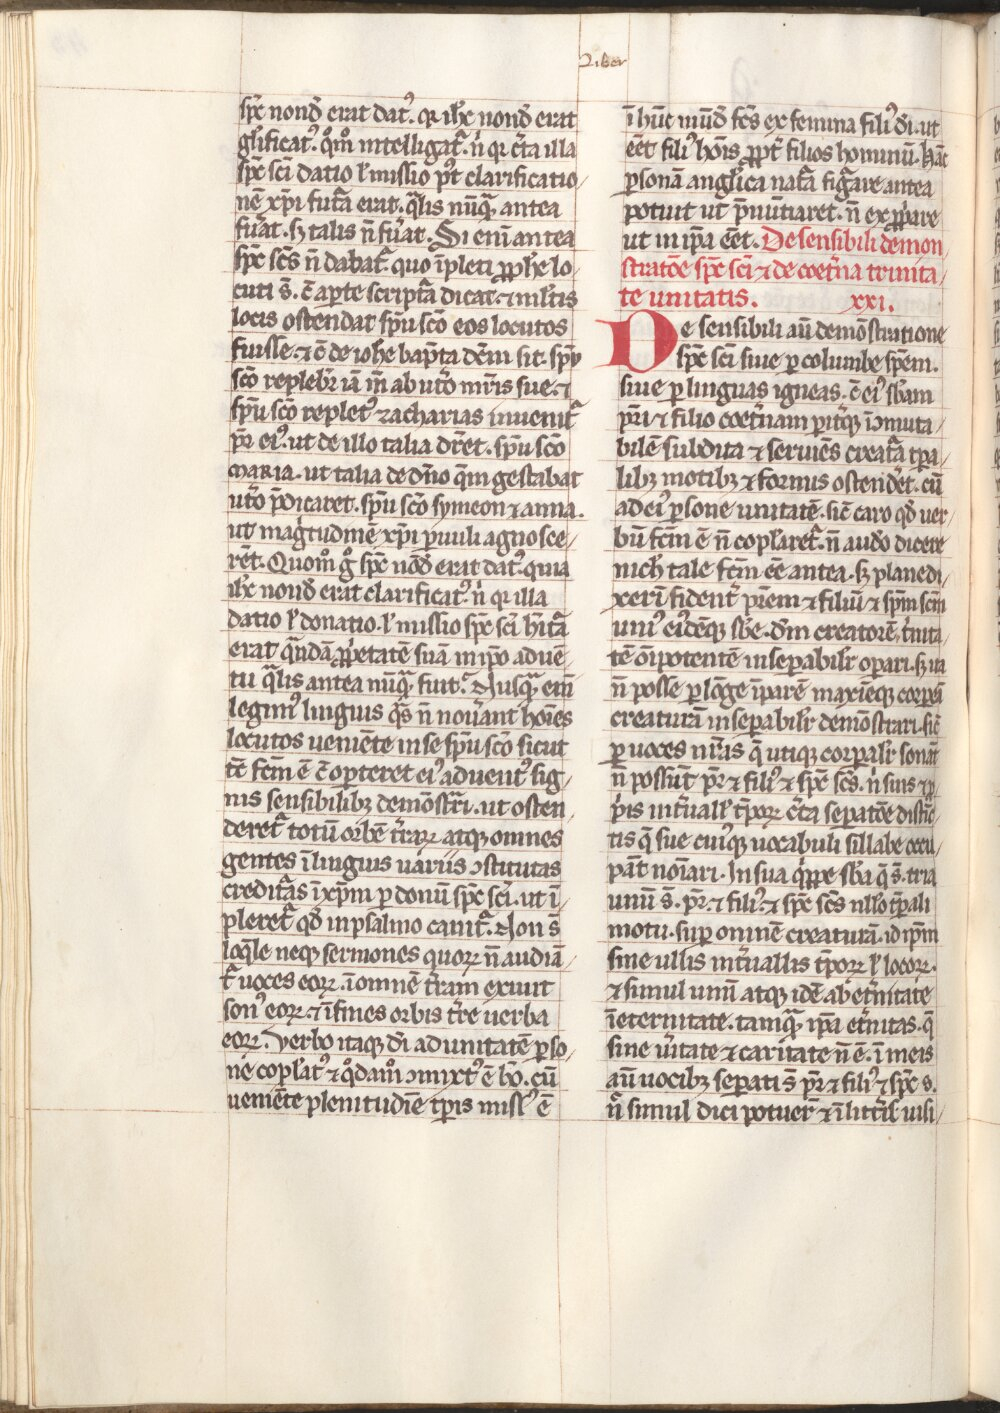 Liber
sp̄c nond̄ erat datꝰ. qꝛ ih̄c nond̄ erat
gl̄ificatꝰ. qūo intelligat᷑. n̄ qꝛ c̄ta illa
sp̄c sc̄i datio ł missio pꝰt clarificatio
nē xp̄i fut̄a erat. q̄lis nūq̄ antea
fūat. sꝫ talis n̄ fūat. Si enī antea
sp̄c sc̄s n̄ dabat᷑. quo īpleti ꝓph̄e lo
cuti s̄. c̄ aꝑte script̄a dicat. ⁊ ml̄tis
locis ostendat sp̄u sc̄o eos locutos
fuisse. ⁊ c̄ de ioh̄e bap̄ta dc̄m sit. sp̄u
sc̄o replebit᷑ iā īn ab ut̄o mr̄is sue. ⁊
sp̄u sc̄o repletꝰ zacharias inuenit᷑
pr̄ eiꝰ. ut de illo talia dr̄et. sp̄u sc̄o
maria. ut talia de dn̄o q̄m gestabat
ut̄o p̄dicaret. sp̄u sc̄o symeon ⁊ anna.
ut maḡtudinē xp̄i ꝑuuli agnosce
rēt. Quom̄o ḡ sp̄c nōd̄ erat datꝰ. quia
ih̄c nond̄ erat clarificatꝰ. n̄ qꝛ illa
datio ł donatio. ł missio sp̄c sc̄i hit̄a
erat q̄ndā ꝓp̄etatē suā in ip̄o aduē
tu q̄lis antea nūq̄ fuit. Nusq̄ enī
legimꝰ linguis q̄s n̄ nouāt hoīes
locutos ueniēte in se sp̄u sc̄o sicut
tc̄ fc̄m ē. c̄ oꝑteret eiꝰ aduentꝰ sig
nis sensibilibꝫ demōstr̄i. ut osten
deret᷑ totū orbē t̄raꝝ atqꝫ omnes
gentes ī linguis uariis ↄstitutas
creditas ī xp̄m ꝑ donū sp̄c sc̄i. ut ī
pleret᷑ qd̄ in psalmo canit᷑. Non s̄
loq̄le neqꝫ sermones quoꝝ n̄ audiā
t᷑ uoces eoꝝ. ī omnē t̄ram exiuit
sonꝰ eoꝝ. ⁊ ī fines orbis t̄re uerba
eoꝝ. Verbo itaqꝫ dī ad unitatē ꝑso
ne copl̄atꝰ ⁊ q̊dam̄o ↄmixtꝰ ē hō. cū
ueniēte plenitudīe tp̄is missꝰ ē
ī hūc mūd̄ fc̄s ex femina filiꝰ dī. ut
ēet filiꝰ hoīs ꝓpt̄ filios hominū. Hāc
ꝑsonā angl̄ica nat̄a figūare antea
potuit ut p̄nūtiaret. n̄ exꝓp̄are
ut in ip̄a ēet. De sensibili demon
stratōe sp̄c sc̄i ⁊ de coet̄na trinita
te unitatis. xxi.
De sensibili aū demōstratione
sp̄c sc̄i siue ꝑ columbe sp̄em.
siue ꝑ linguas igneas. c̄ eiꝰ sb̄am
pr̄i ⁊ filio coet̄nam pit̄qꝫ īↄmuta
bilē subdita ⁊ seruiēs creat̄a tp̄a
libꝫ motibꝫ ⁊ formis ostend̄et. cū
ad eiꝰ ꝑsone unitatē. sic̄ caro qd̄ uer
bū fc̄m ē n̄ copl̄aret᷑. n̄ audo dicere
nich̄ tale fc̄m ēe antea. sꝫ plane di
xerī fident̄ pr̄em ⁊ filiū ⁊ sp̄m sc̄m
uniꝰ eiꝰdēqꝫ sb̄e. dm̄ creatorē. t̄nita
tē oīpotentē insepabilr̄ opari. sꝫ ita
n̄ posse ꝑ lōge īparē maxīeqꝫ corpeā
creaturā insepabilr̄ demōstrari. sic̄
ꝑ uoces nr̄as q̄ utiqꝫ corpalr̄ sonāt
n̄ possūt pr̄ ⁊ filiꝰ ⁊ sp̄c sc̄s. n̄ suis ⁊ ꝓ
p̄is int̄uall᷑ tp̄oꝝ c̄ta sepatōe distīc
tis q̄ sue cuiꝰqꝫ uocabuli sillabe occu
pāt noīari. In sua q̄ppe sb̄a q̄ s̄. tria
unū s̄. pr̄. ⁊ filiꝰ. ⁊ sp̄c sc̄s nll̄o tp̄ali
motu. suꝑ omnē creaturā. id ip̄m
sine ullis int̄uallis tp̄oꝝ ł locoꝝ.
⁊ simul unū atqꝫ idē ab et̄nitate
ī eternitate. tamq̄ ip̄a et̄nitas. q̄
sine ūitate ⁊ caritate n̄ ē. ī meis
aū uocibꝫ sepati s̄ pr̄ ⁊ filiꝰ ⁊ sp̄c s.
n̄ simul dici potuer̄ ⁊ ī litt̄is uisi